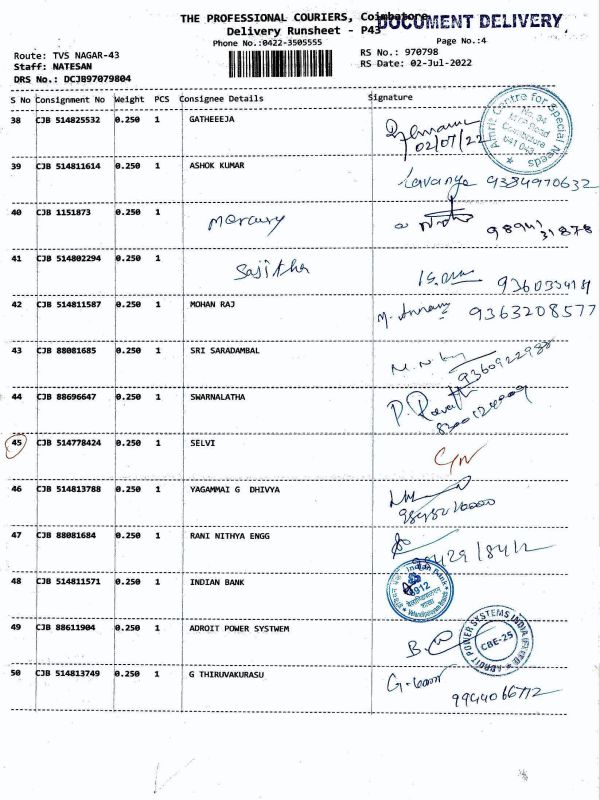 THE PROFESSIONAL COURIERS, Coimbatore
DOCUMENT DELIVERY
Delivery Runsheet - P43
Phone No.:0422-3505555
Page No.:4
Route: TVS NAGAR-43
RS No.: 970798
Staff: NATESAN
RS Date: 02-Jul-2022
DRS No.: DCJB97079804
S No Consignment No Weight PCS Consignee Details Signature
38 CJB 514825532 0.250 1 GATHEEEJA
02/07/22
Amrit Centre for Special Needs
Coimbatore
641 043
39 CJB 514811614 0.250 1 ASHOK KUMAR Lavanya 9384970632
40 CJB 1151873 0.250 1 Mercury
41 CJB 514802294 0.250 1 Sajitha
42 CJB 514811587 0.250 1 MOHAN RAJ 9363208577
43 CJB 88081685 0.250 1 SRI SARADAMBAL
44 CJB 88696647 0.250 1 SWARNALATHA P. Revathi
45 CJB 514778424 0.250 1 SELVI
46 CJB 514813788 0.250 1 YAGAMMAI G DHIVYA
47 CJB 88081684 0.250 1 RANI NITHYA ENGG
48 CJB 514811571 0.250 1 INDIAN BANK
Indian Bank
49 CJB 88611904 0.250 1 ADROIT POWER SYSTWEM
ADROIT POWER SYSTEMS INDIA
CBE-25
50 CJB 514813749 0.250 1 G THIRUVAKURASU
9944066772